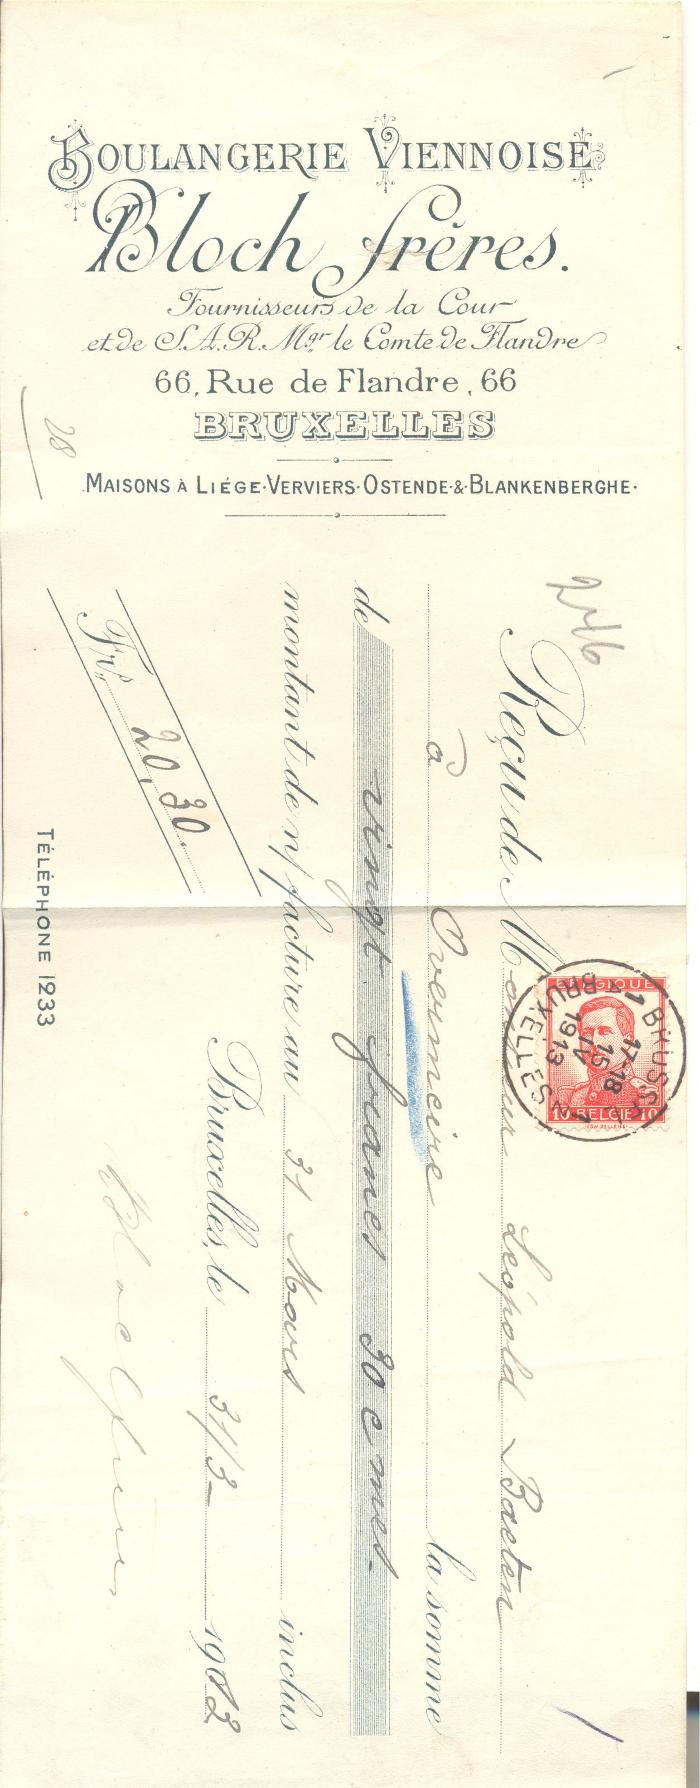 BOULANGERIE VIENNOISE
Bloch frères.
Fournisseurs de la Cour
et de S.A.R. Mgr le Comte de Flandre
66, Rue de Flandre, 66
BRUXELLES
MAISONS À LIÉGE·VERVIERS·OSTENDE·&·BLANKENBERGHE·
28
246
Reçu de Monsieur Léopold Baeten
à Overmeire la somme
de vingt francs 30 cmes.
montant de n/ facture au 31 Mars inclus
Bruxelles, le 31/3 - 1913
Frs 20,30.
TÉLÉPHONE 1233
BELGIQUE
10 BELGIË 10
1 BRUSSEL 1
17-18
15
IV
1913
BRUXELLES